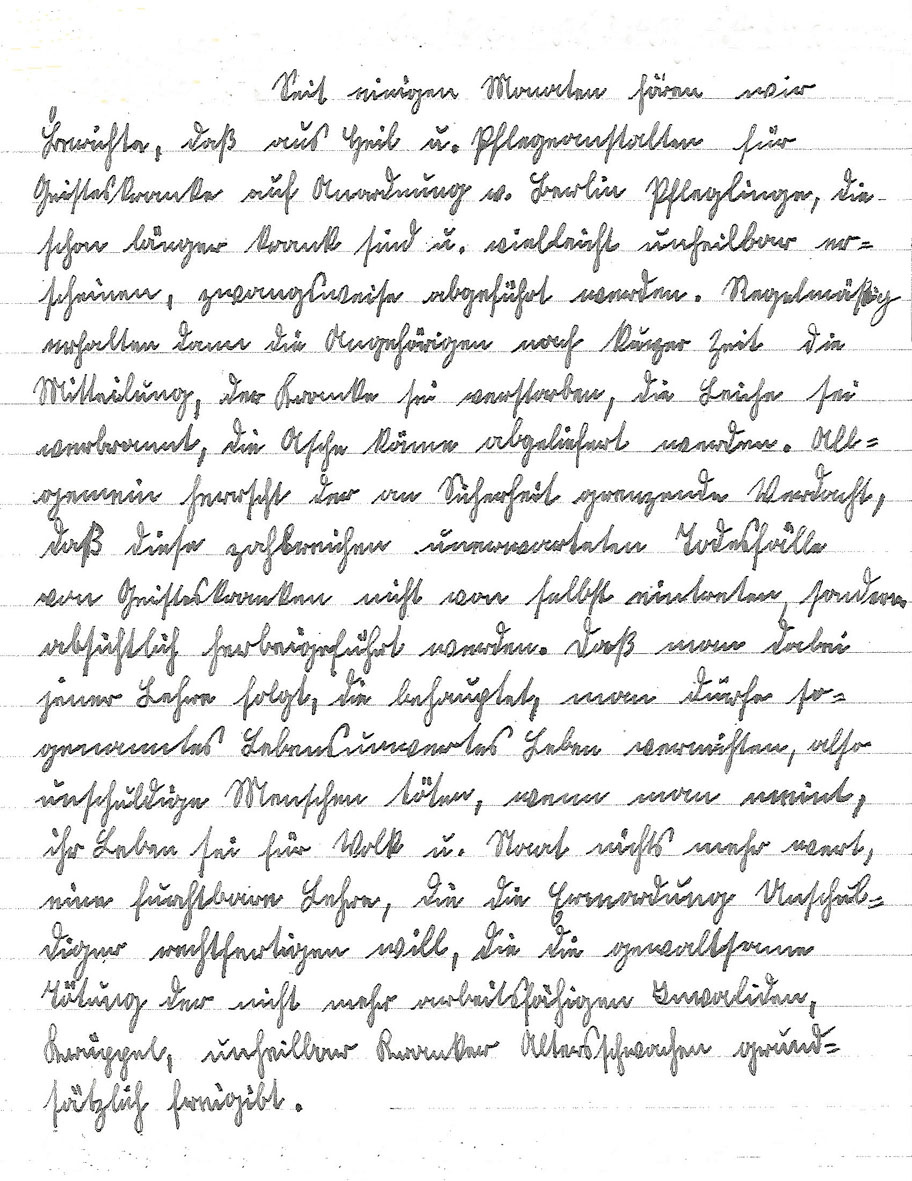 Seit einigen Monaten hören wir
Berichte, daß aus Heil u. Pflegeanstalten für
Geisteskranke auf Anordnung v. Berlin Pfleglinge, die
schon länger krank sind u. vielleicht unheilbar er=
scheinen, zwangsweise abgeführt werden. Regelmäßig
erhalten dann die Angehörigen nach kurzer Zeit die
Mitteilung, der Kranke sei verstorben, die Leiche sei
verbrannt, die Asche käme abgeliefert werden. All=
gemein herrscht der an Sicherheit grenzende Verdacht,
daß diese zahlreichen unerwarteten Todesfälle
von Geisteskranken nicht von selbst eintreten, sondern
absichtlich herbeigeführt werden. Daß man dabei
jener Lehre folgt, die behauptet, man dürfe so=
genanntes Lebensunwertes Leben vernichten, also
unschuldige Menschen töten, wenn man meint,
ihr Leben sei für Volk u. Staat nichts mehr wert,
eine furchtbare Lehre, die die Ermordung Unschul=
diger rechtfertigen will, die die gewaltsame
Tötung der nicht mehr arbeitsfähigen Invaliden,
Krüppel, unheilbar Kranker Altersschwachen grund=
sätzlich freigibt.